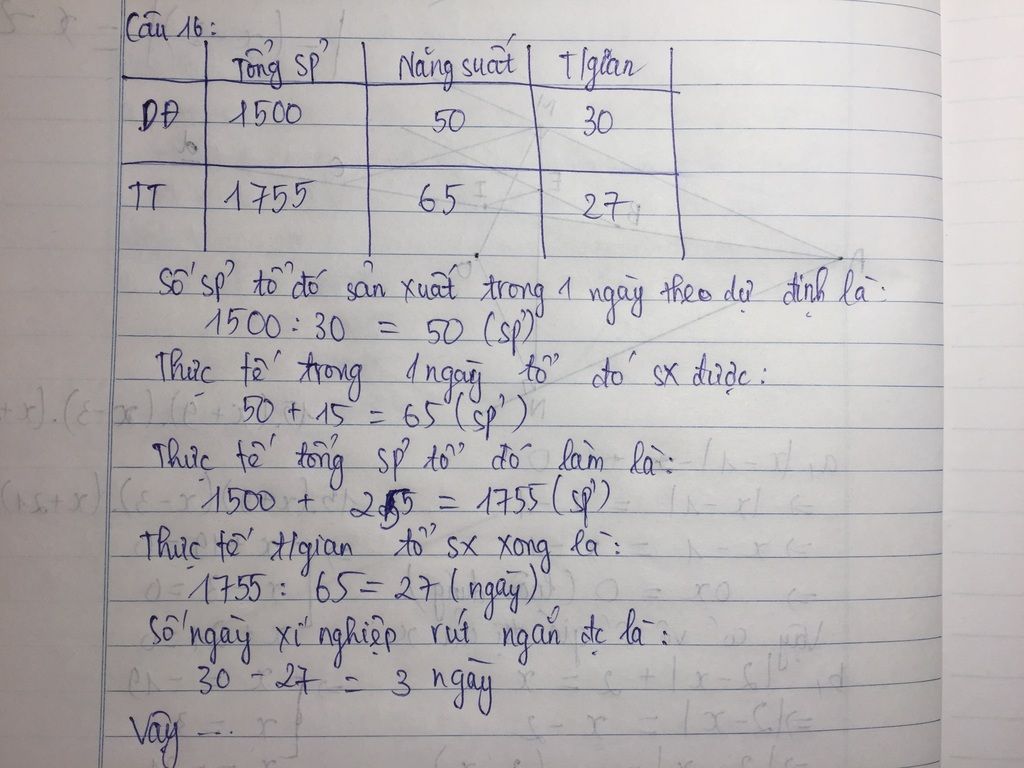 Câu 16:
Tổng sp' Năng suất T/gian
DĐ 1500 50 30
TT 1755 65 27
Số sp' tổ đó sản xuất trong 1 ngày theo dự định là:
1500 : 30 = 50 (sp')
Thực tế trong 1 ngày tổ đó sx được:
50 + 15 = 65 (sp')
Thực tế tổng sp' tổ đó làm là:
1500 + 255 = 1755 (sp')
Thực tế t/gian tổ sx xong là:
1755 : 65 = 27 (ngày)
Số ngày xí nghiệp rút ngắn đc là:
30 - 27 = 3 ngày
Vậy ....